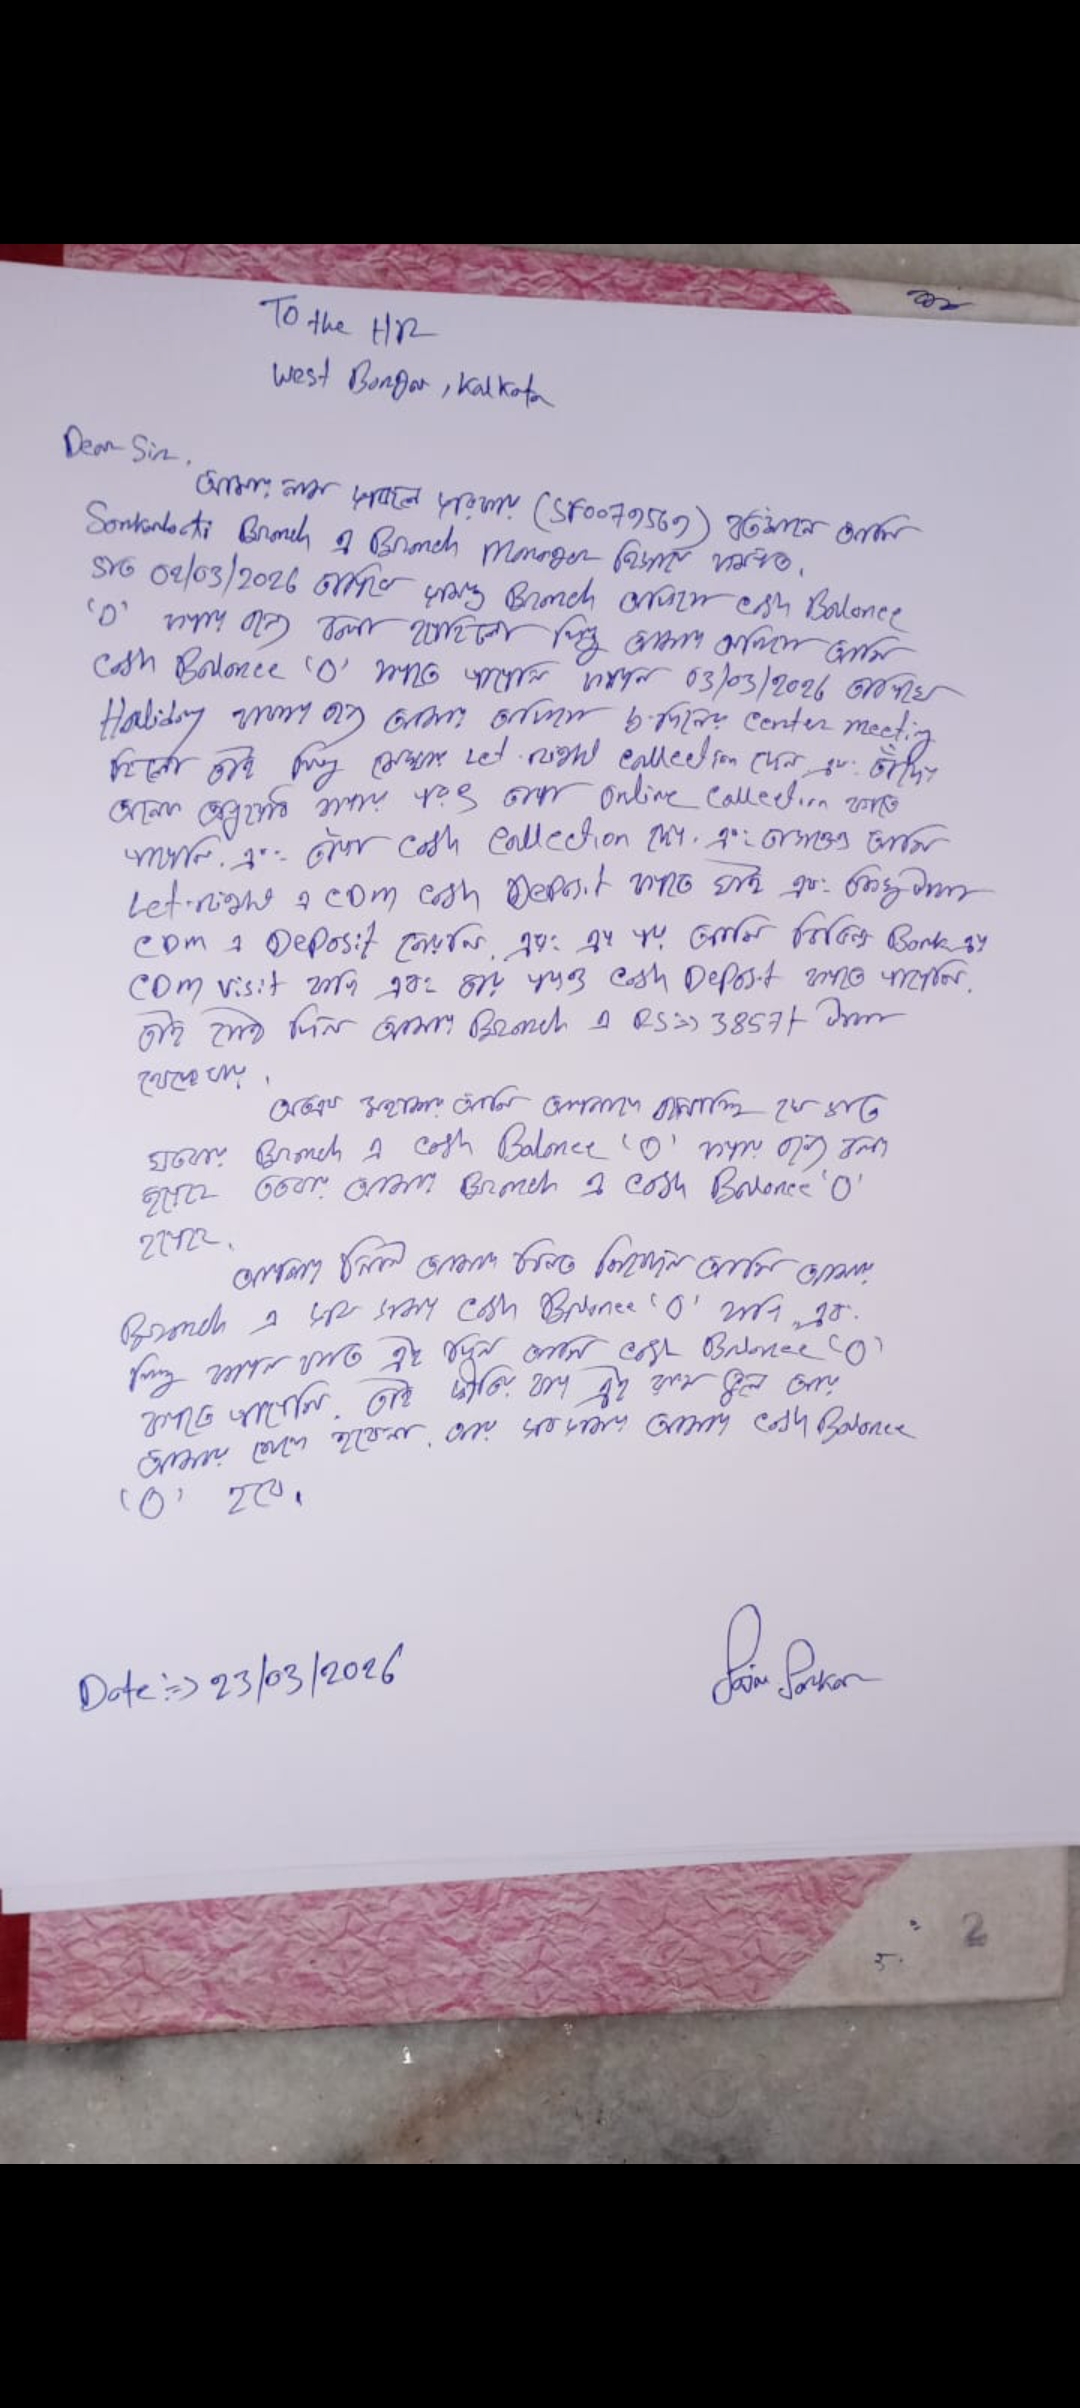 To the HR
West Bengal, Kolkata
Dear Sir,
আমার নাম সরকার (SF0079569) বর্তমানে আমি
Branch এ Branch Manager হিসাবে কর্মরত.
গত 02/03/2026 তারিখে সমস্ত Branch অফিসে cash Ballance
'0' করার জন্য বলা হয়েছিলো কিন্তু আমার অফিসে আমি
cash Ballance '0' করতে পারিনি কারন 03/03/2026 তারিখে
Holliday থাকার জন্য আমার অফিসে দিনের center meeting
ছিলো তাই কিছু মেম্বার Let-night collection দেন এবং তাঁদের
অনেক থাকার তারা online collection করতে
পারেনি. এবং তাঁরা cash collection দেয়. এবং তারপরও আমি
Let-night এ CDM cash Deposit করতে যাই এবং কিছু টাকা
CDM এ Deposit নেয়নি. এবং এর পর আমি বিভিন্ন Bank এর
CDM visit করি এবং তার পরও cash Deposit করতে পারিনি.
তাই সেই দিন আমার Branch এ RS=> 38571 টাকা
থেকে যায়.
অতএব মহাশয় আমি আপনাকে জানাচ্ছি যে গত
যতবার Branch এ cash Balance '0' করার জন্য বলা
হয়েছে ততবার আমার Branch এ cash Ballance '0'
হয়েছে.
আপনার নিকট আমার বিনীত নিবেদন আমি আমার
Branch এ সব সময় cash Balance '0' করি এবং
কিছু কারন বসত এই দিন আমি cash Ballance '0'
করতে পারিনি. তাই এই ভুল আর
আমার হবেনা. আর সবসময় আমার cash Balance
'0' হবে.
Date :=> 23/03/2026
Sarkar
2